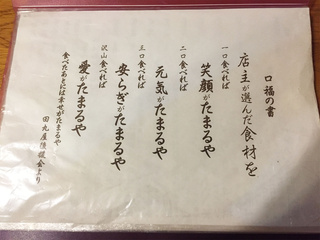 口福の書
店主が選んだ食材を
一口食べれば
笑顔がたまるや
二口食べれば
元気がたまるや
三口食べれば
安らぎがたまるや
沢山食べれば
愛がたまるや
食べたあとには幸せがたまるや
田丸屋後援会より